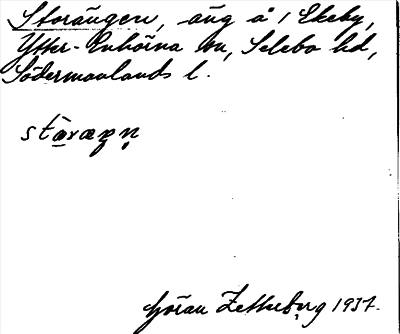 Storängen, äng å 1 Ekeby,
Ytter-Enhörna sn, Selebo hd,
Södermanlands l.
Göran Zetterberg 1937.